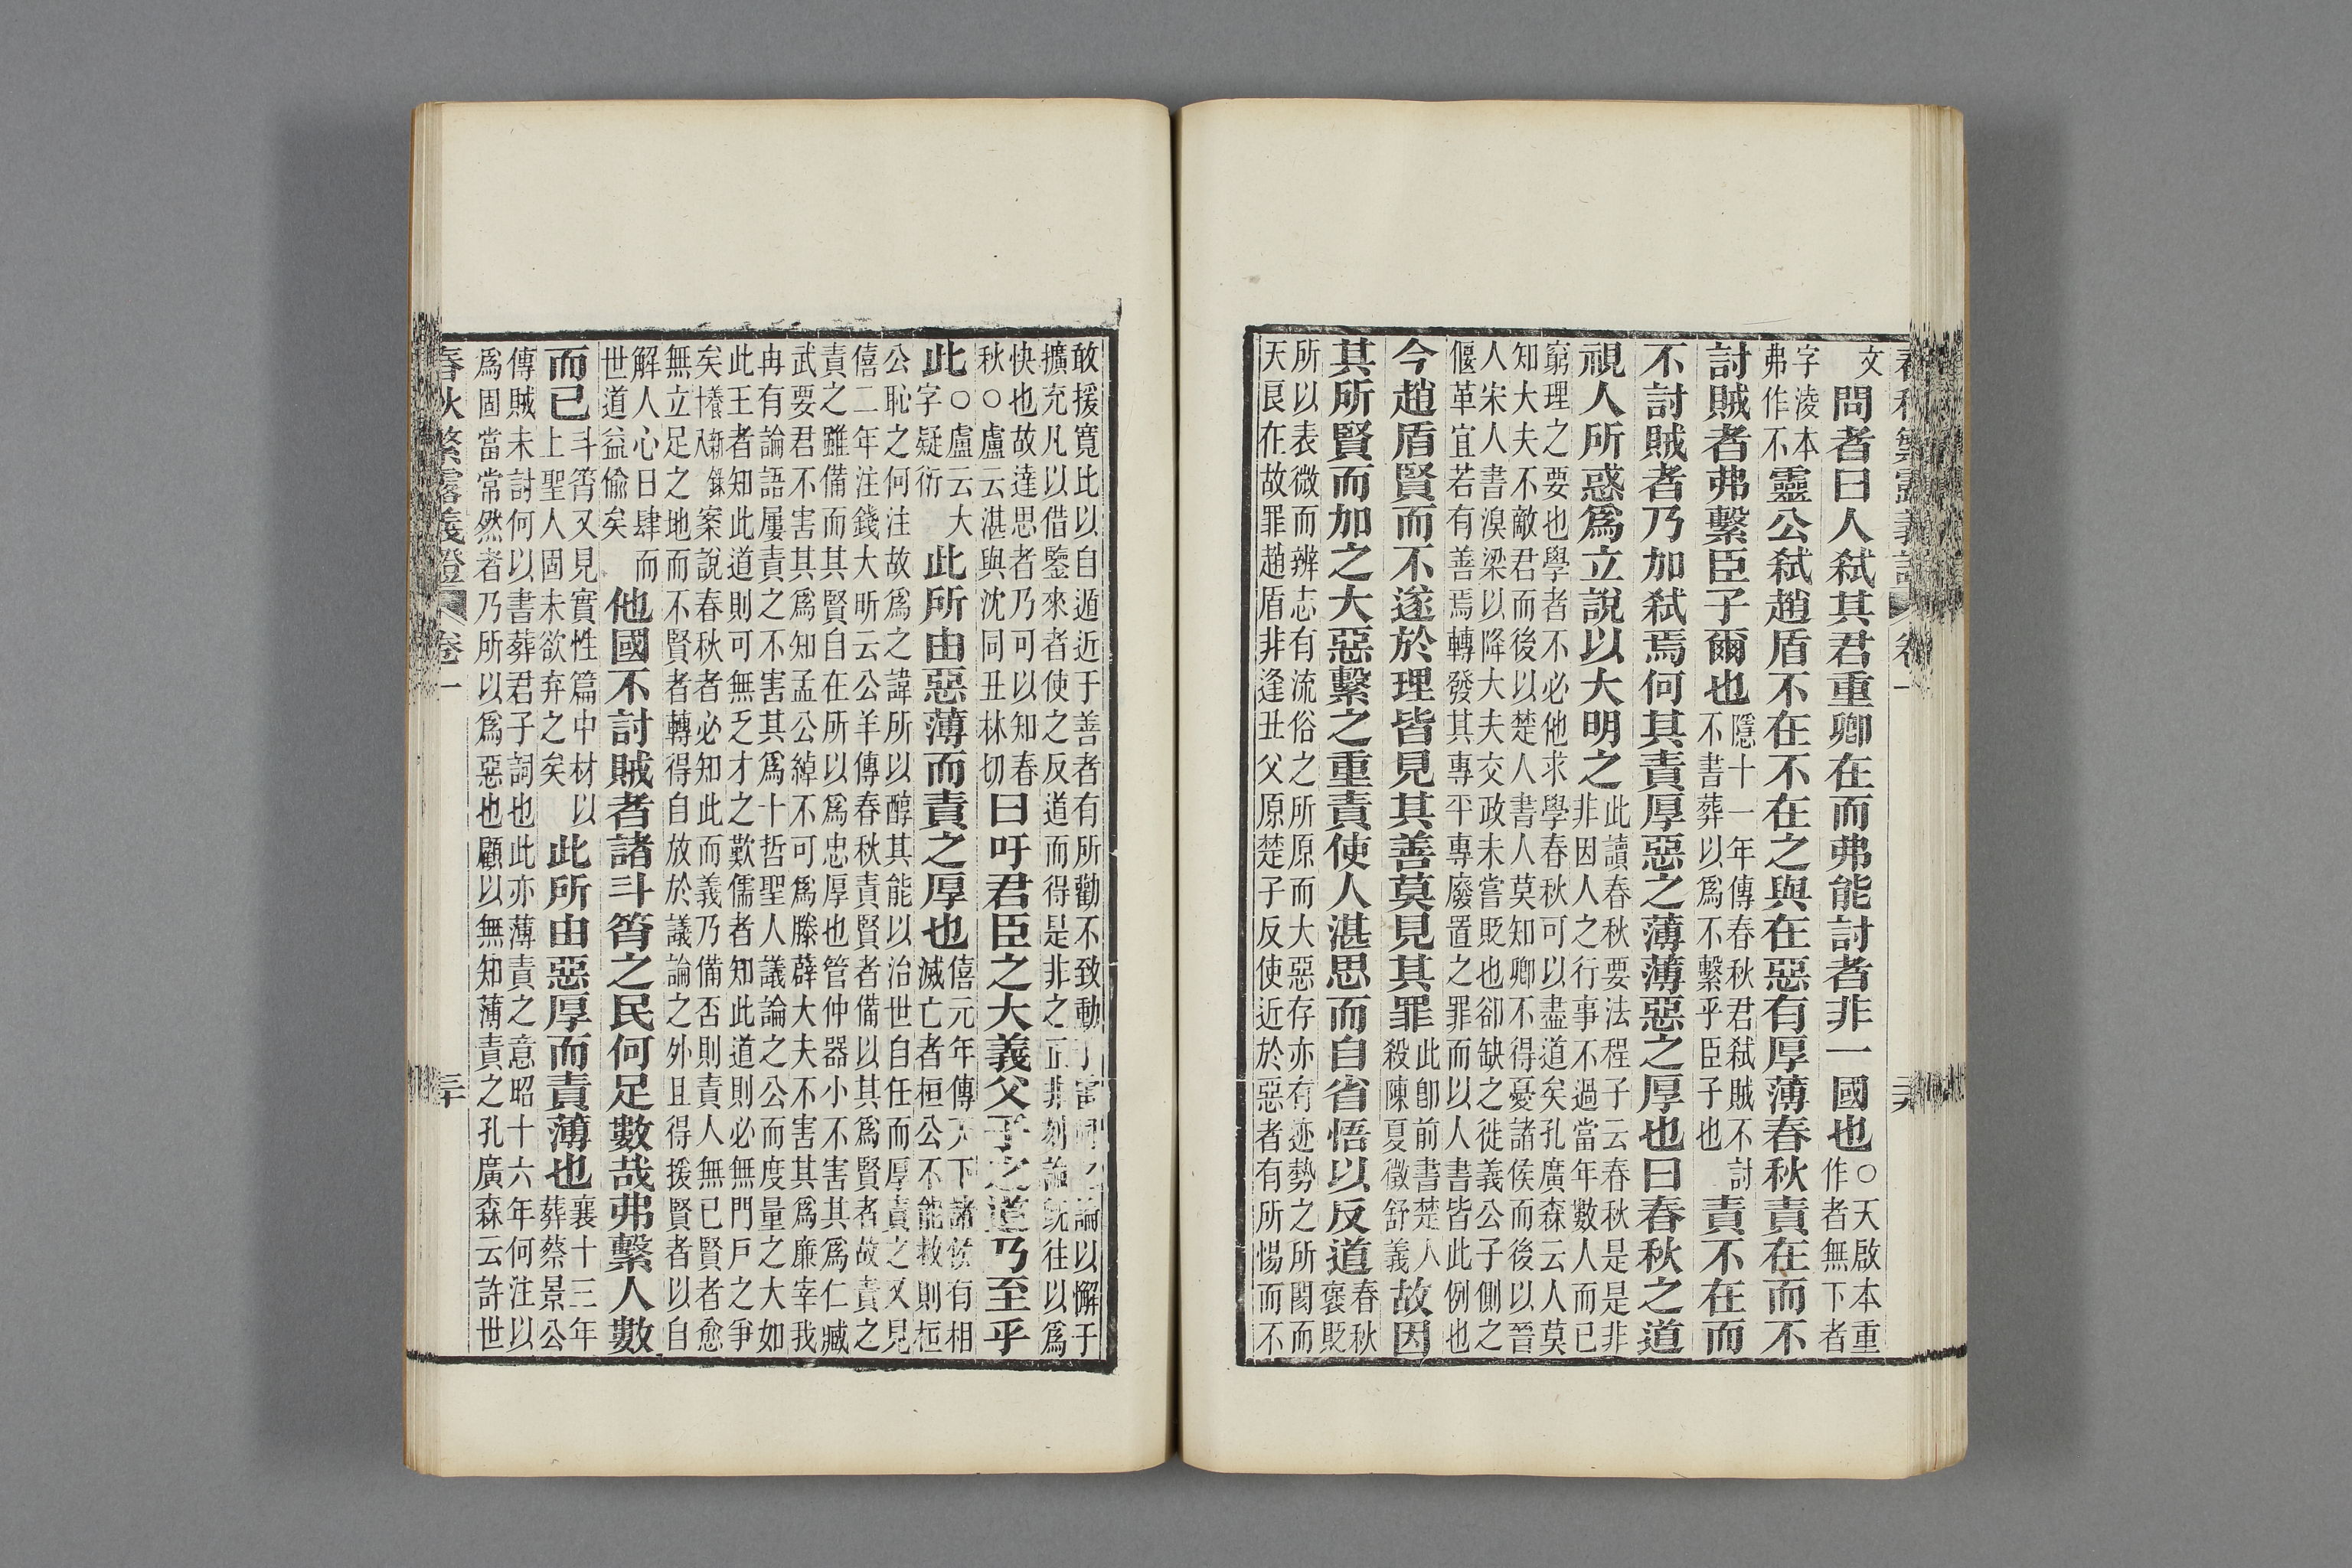 春秋繁露義證 卷一
文問者曰人弑其君重卿在而弗能討者非一國也○天啟本重作者無下者
字淩本弗作不靈公弑趙盾不在不在之與在惡有厚薄春秋責在而不
討賊者弗繫臣子爾也隱十一年傳春秋君弑賊不討不書葬以爲不繫乎臣子也責不在而
不討賊者乃加弑焉何其責厚惡之薄薄惡之厚也曰春秋之道
視人所惑爲立說以大明之此讀春秋要法程子云春秋是是非非因人之行事不過當年數人而已
窮理之要也學者不必他求學春秋可以盡道矣孔廣森云人莫知大夫不敵君而後以楚人書人莫知卿不得憂諸侯而後以晉
人宋人書溴梁以降大夫交政未嘗貶也卻缺之徙義公子側之偃革宜若有善焉轉發其專平專廢置之罪而以人書皆此例也
今趙盾賢而不遂於理皆見其善莫見其罪此卽前書楚人殺陳夏徵舒義故因
其所賢而加之大惡繫之重責使人湛思而自省悟以反道春秋褒貶
所以表微而辨志有流俗之所原而大惡存亦有迹勢之所閡而天良在故罪趙盾非逢丑父原楚子反使近於惡者有所惕而不
敢援寬比以自遁近于善者有所勸不致動以懈于擴充凡以借鑒來者使之反道而得是非之正非刻論旣往以爲
快也故達思者乃可以知春秋○盧云湛與沈同丑林切曰吁君臣之大義父子之道乃至乎
此○盧云大字疑衍此所由惡薄而責之厚也僖元年傳下諸侯有相滅亡者桓公不能救則桓
公恥之何注故爲之諱所以醇其能以治世自任而厚責之又見僖二年注錢大昕云公羊傳春秋責賢者備以其爲賢者故責之
責之雖備而其賢自在所以爲忠厚也管仲器小不害其爲仁臧武要君不害其爲知孟公綽不可爲滕薛大夫不害其爲廉宰我
冉有論語屢責之不害其爲十哲聖人議論之公而度量之大如此王者知此道則可無乏才之歎儒者知此道則必無門戸之爭
矣十養新錄八案說春秋者必知此而義乃備否則責人無已賢者愈無立足之地而不賢者轉得自放於議論之外且得援賢者以自
解人心日肆而世道益偷矣他國不討賊者諸斗筲之民何足數哉弗繫人數
而已斗筲又見實性篇中材以上聖人固未欲弃之矣此所由惡厚而責薄也襄十三年葬蔡景公
傳賊未討何以書葬君子詞也此亦薄責之意昭十六年何注以爲固當常然者乃所以爲惡也顧以無知薄責之孔廣森云許世
春秋繁露義證 卷一 三十